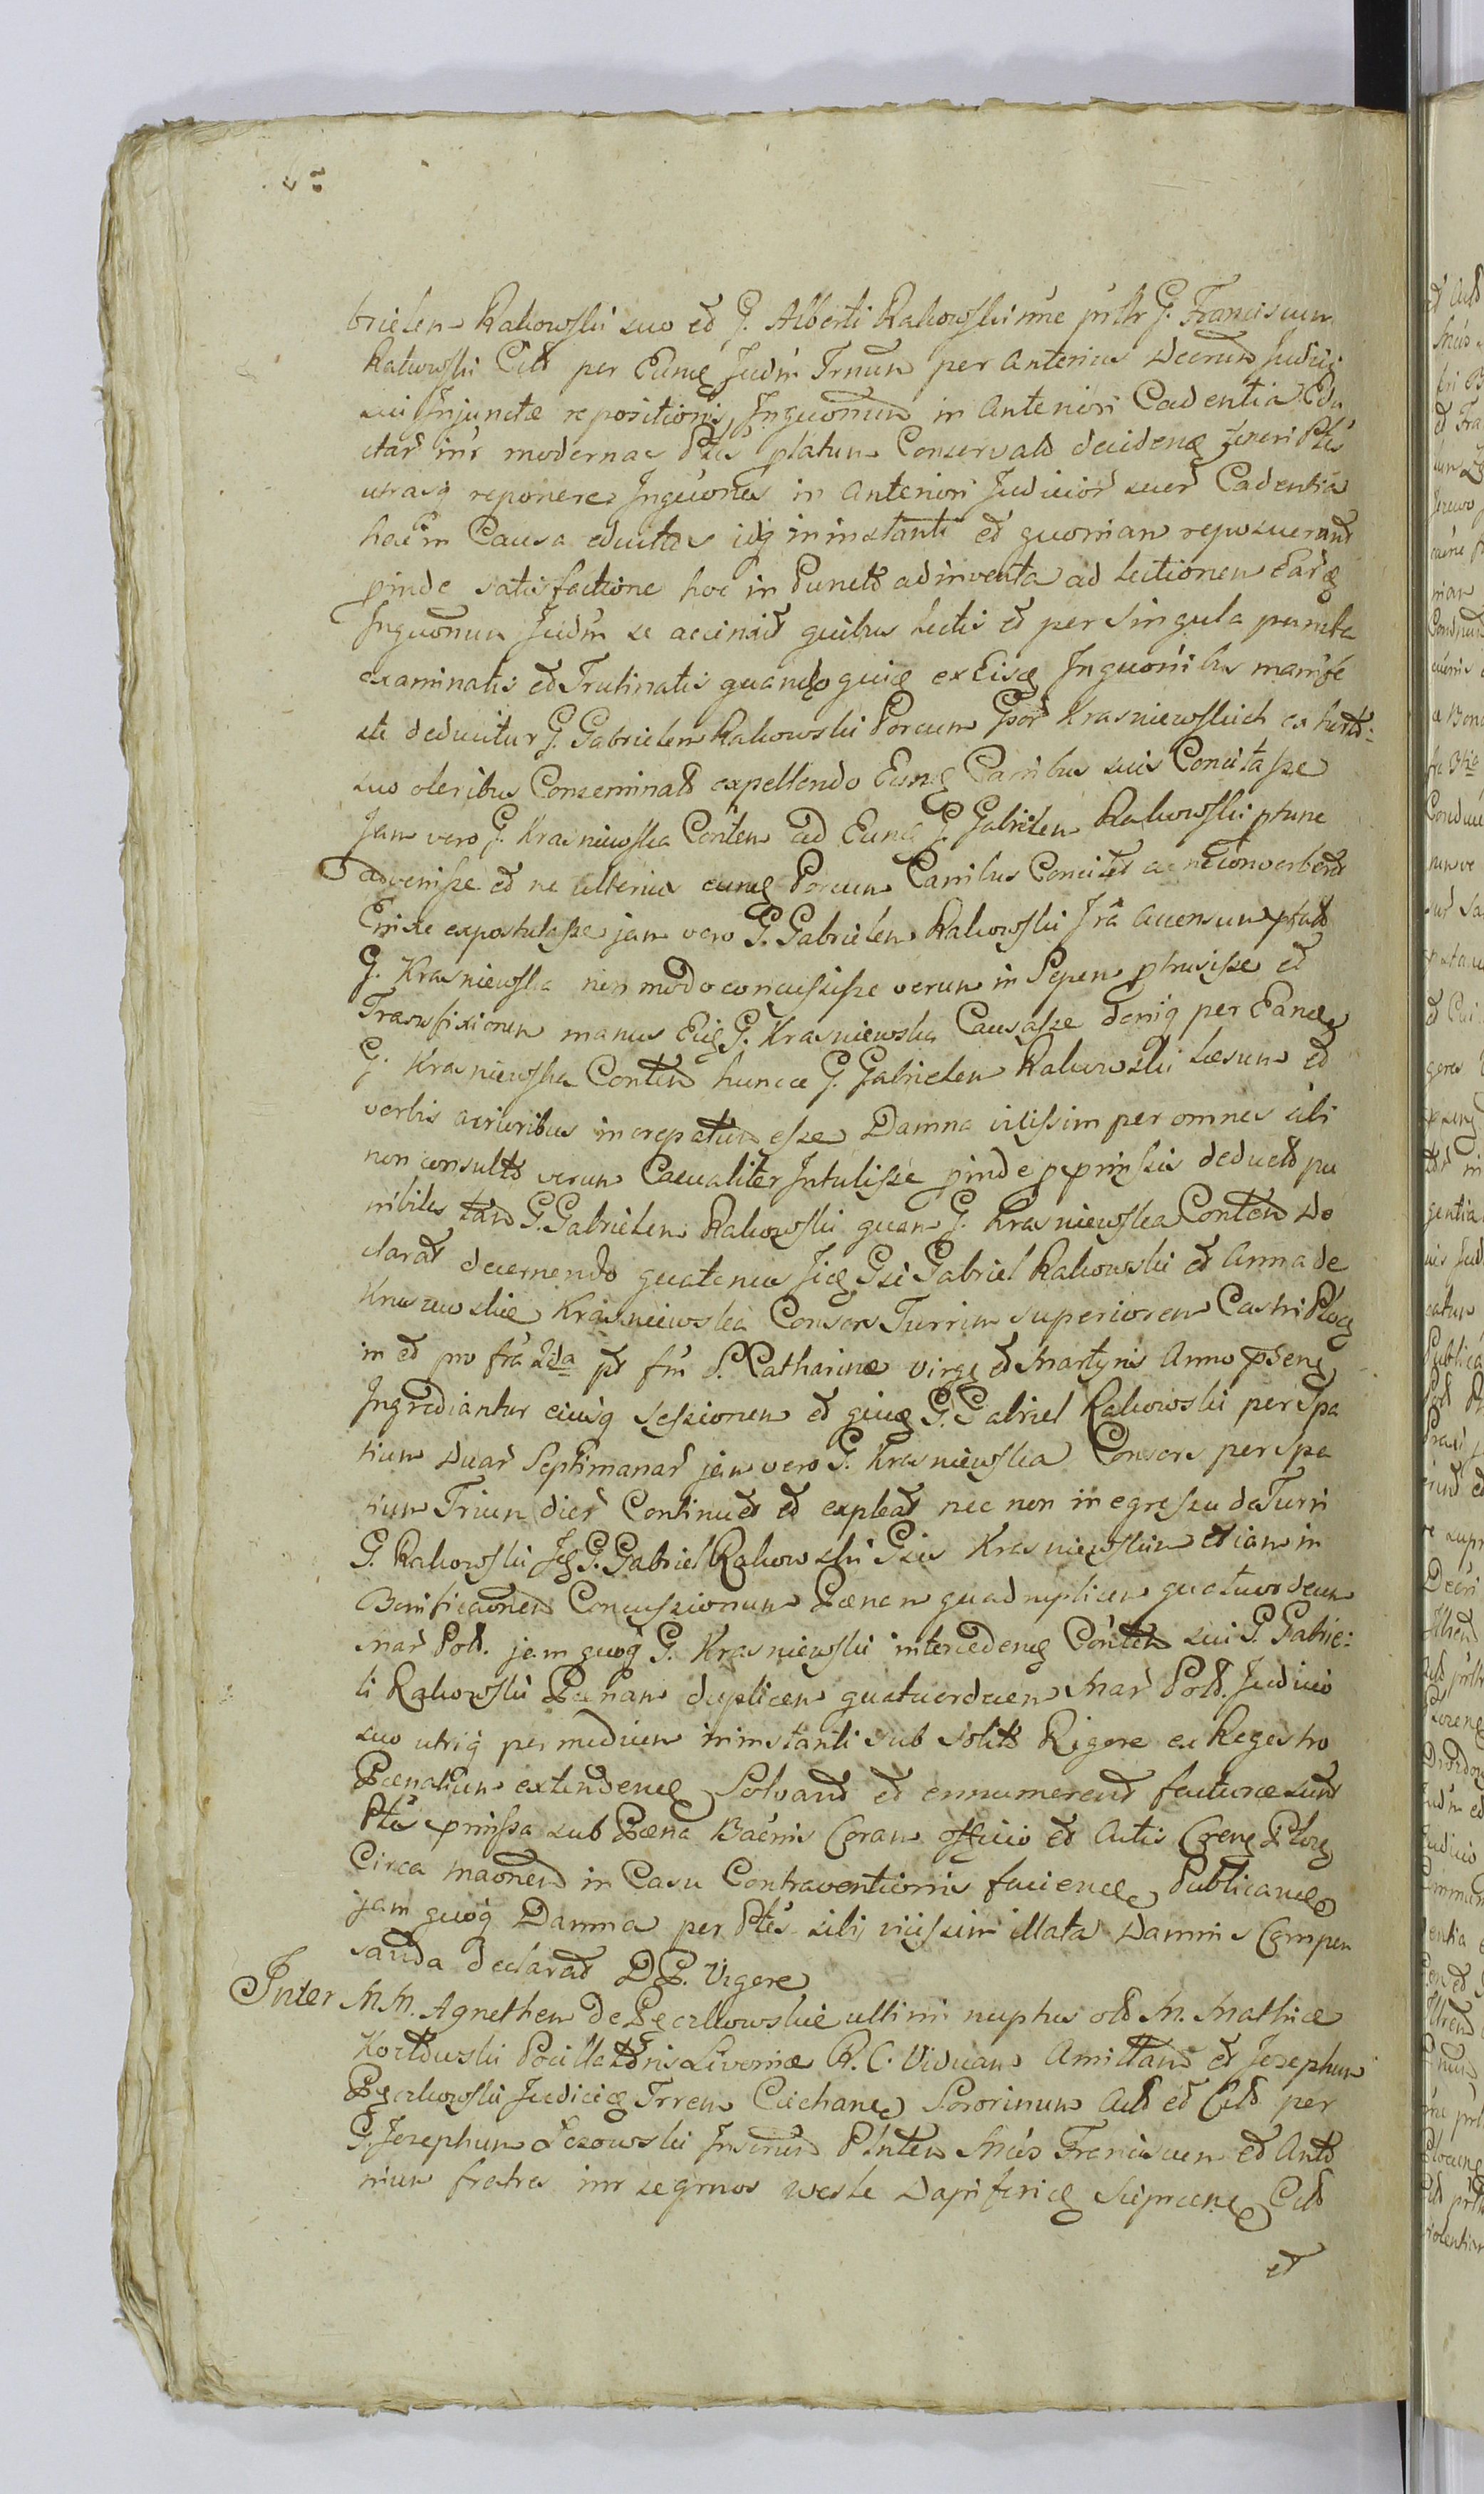 brielem Rakowski suo et G. Alberti Rakowski nne pnlr G. Franciscum
Rakowski Citt per Eund Judm Trnum per Anterius Decrum Judicij
sui Injunctæ repositionis Inquonum in Anteriori Cadentia Edu
ctar inr modernas Ptes platum Conservato decidend
utrasq reponere Inquones in Anteriori Judicior suor Cadentia
hac in Causa eductas idq in instanti et quoniam reposuerunt
pinde satisfactione hoc in Puncto adinventa ad lectionem Eard
Inquonum Judm se accinxit quibus lectis et per singula puncta
examinatis et Trutinatis quando quid ex Eisd Inquonibus manife
ste deducitur G. Gabrielem Rakowski Porcum Gsor Krasniewskich ex horto
suo oleribus Conseminato expellendo Eund Canibus suis Concitasse
Jam vero G. Krasniewska Conten ad Eund G. Gabrielem Rakowski ptunc
advenisse et ne ulterius eund Porcum Canibus Concitet ac
Enixe expostulasse jam vero G. Gabrielem Rakowski Ira Accensum ptatt
G. Krasniewska non modo concussisse verum in Sepem ptrusisse et
Transfixionem manus Eid G. Krasniewska Causasse deniq per Eand
G. Krasniewska Conten hunce G. Gabrielem Rakowski læsum et
verbis acrioribus increpatum esse Damna vicissim per omnes sibi
non consulto verum Casualiter Intulisse pinde ppmissis deducto pu
nibiles tam G. Gabrielem Rakowski quam G. Krasniewska Conten De
clarat decernendo quatenus Jid Gsi Gabriel Rakowski et Anna de
Krasniewska Consors Turrim superiorem Castri Ploc
in et pro fra 2da pt fm S. Catharinæ virg et Martyris Anno psend
Ingrediantur eiusq sessionem et quid G. Gabriel Rakowski per Spa
tium Duar Septimanar jam vero G. Krasniewska Consors per spa
tium Trium dier Continuet et expleat nec non in egressu de Turri
G. Rakowski Jd G. Gabriel Rakowski Gsis Krasniewskim etiam in
Bonificaonem Concussionum Pænam quadruplicem quatuordecim
Mar Pol. jam quoq G. Krasniewski intercedend Conten sui G. Gabrie:
li Rakowski Pænam duplicem quatuordecim Mar Pol. Judicio
suo utriq per medium in instanti sub solito Rigore ex Regestro
Pænalium extendend Solvant et ennumerent facturæ sunt
Ptes pmissa sub Pæna Baenis Coram officio et Actis Cren Ploc
Circa maonem in Casu Contraventionis faciend Publicand
jam quoq Damna per Ptes sibi vicissim illata Damnis Compen
santa declarat D.P. Vigore
Inter M.M. Agnethem De Pęczkowskie ultimi nuptus olt M. Mathiæ
Pocillatoris Livoniæ R. C. Viduam Amittam et Josephum
Pęczkowski Judicid Trren Ciechan Sororinum Act et Citt per
G. Josephum Plnten Mcos Franciscum et Anto
nium fratres inr se gnnos Dapiferid Sieprcen Citt
et